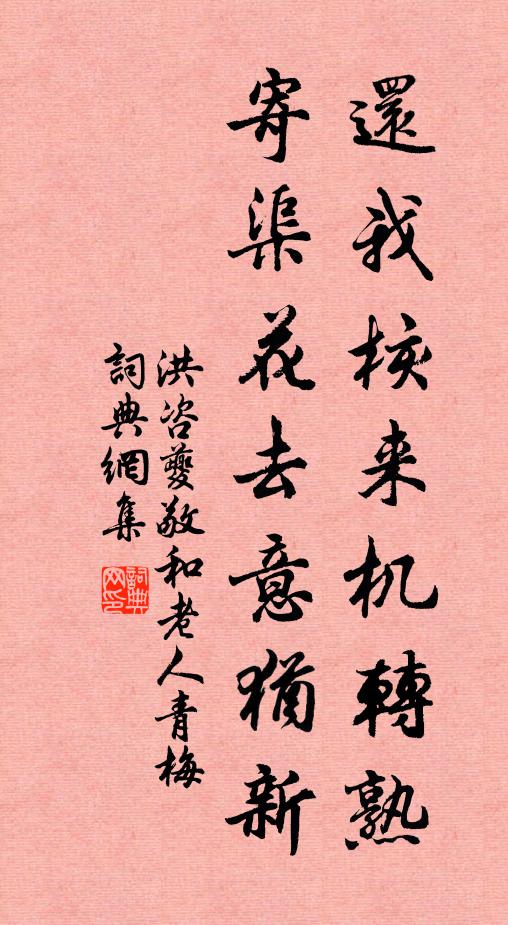 還我核来机轉熟
寄渠花去意猶新
洪咨夔敬和老人青梅
詞典網集
詞典网印